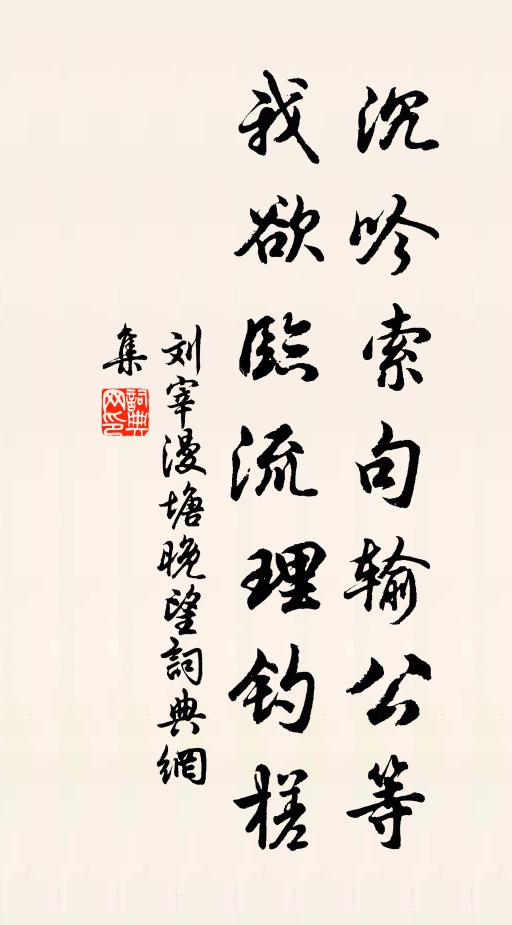 沉吟索句输公等
我欲临流理钓槎
刘宰漫塘晚望詞典網
集
詞典网印